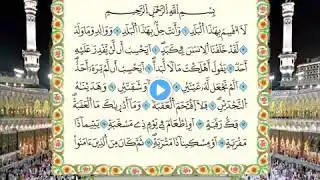 بِسْمِ اللَّهِ الرَّحْمَٰنِ الرَّحِيمِ
لَا أُقْسِمُ بِهَٰذَا الْبَلَدِ وَأَنْتَ حِلٌّ بِهَٰذَا الْبَلَدِ وَوَالِدٍ وَمَا وَلَدَ
لَقَدْ خَلَقْنَا الْإِنْسَانَ فِي كَبَدٍ أَيَحْسَبُ أَنْ لَنْ يَقْدِرَ عَلَيْهِ
أَحَدٌ يَقُولُ أَهْلَكْتُ مَالًا لُبَدًا أَيَحْسَبُ أَنْ لَمْ يَرَهُ أَحَدٌ
أَلَمْ نَجْعَلْ لَهُ عَيْنَيْنِ وَشَفَتَيْنِ وَهَدَيْنَاهُ
النَّجْدَيْنِ فَلَا اقْتَحَمَ الْعَقَبَةَ وَمَا أَدْرَاكَ مَا الْعَقَبَةُ
فَكُّ رَقَبَةٍ أَوْ إِطْعَامٌ فِي يَوْمٍ ذِي مَسْغَبَةٍ يَتِيمًا ذَا
مَقْرَبَةٍ أَوْ مِسْكِينًا ذَا مَتْرَبَةٍ ثُمَّ كَانَ مِنَ الَّذِينَ آمَنُوا